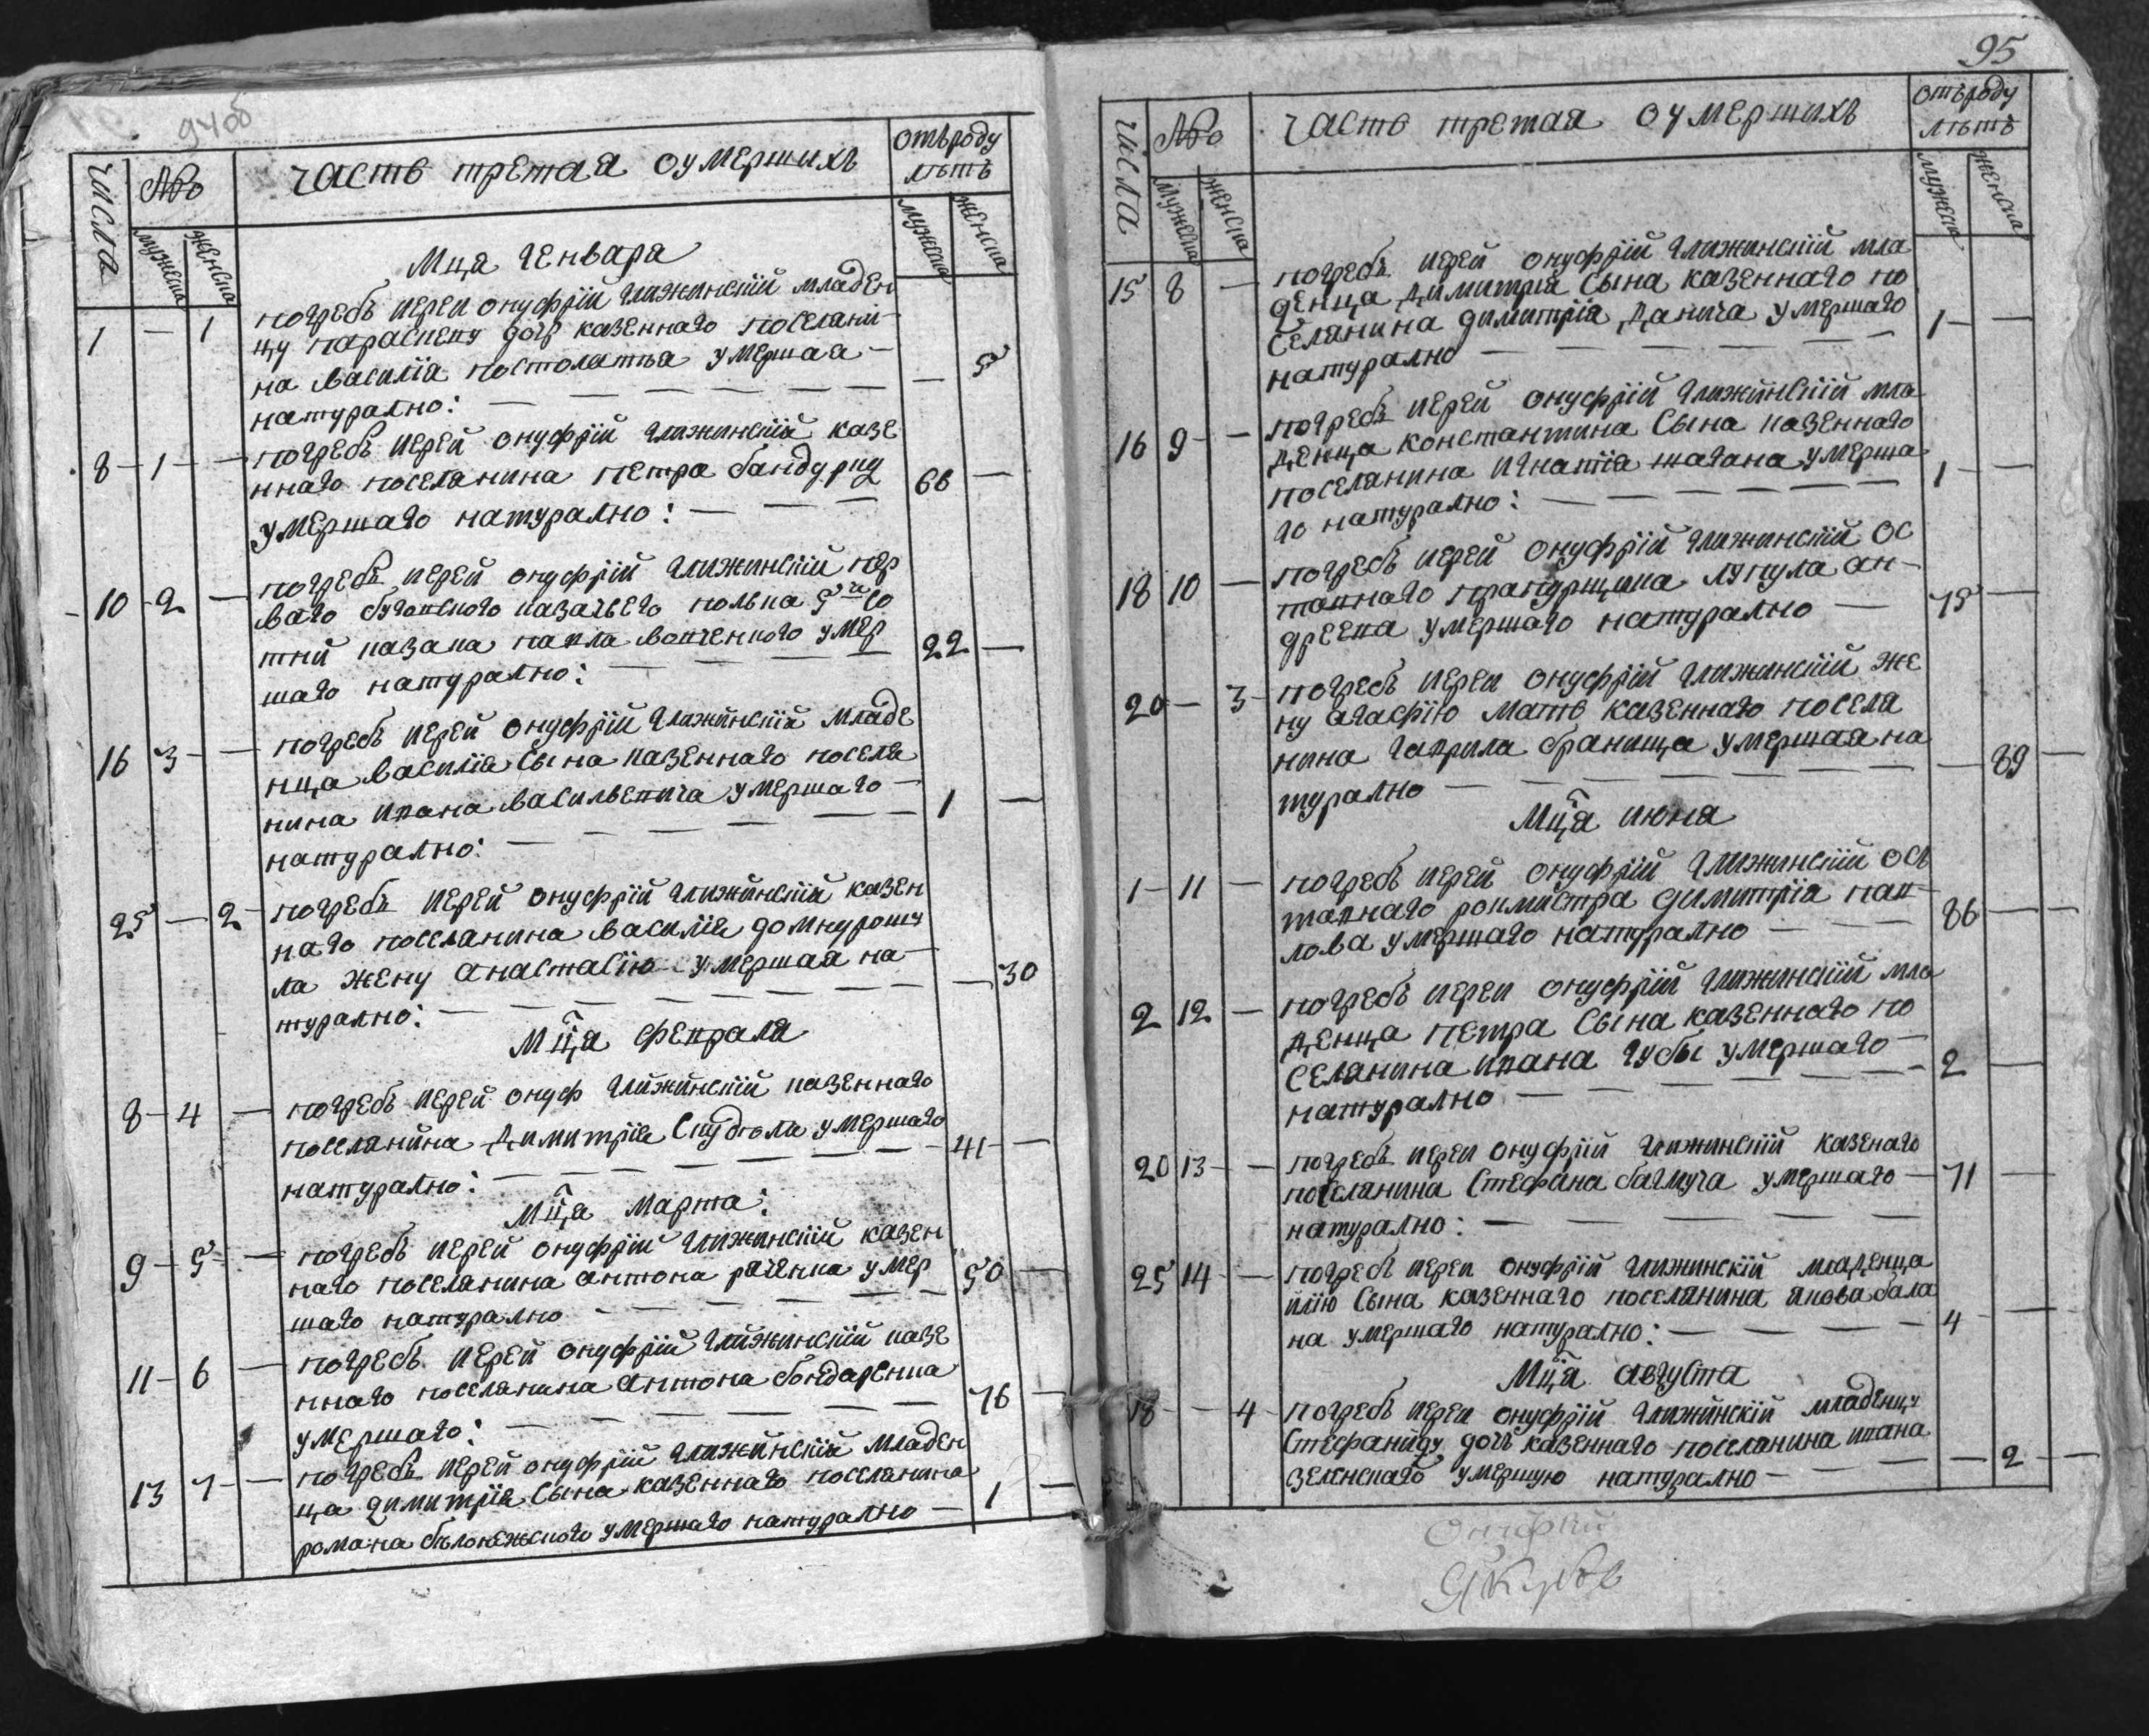 94об
числа № часть третая оумершихъ отъроду лѣтъ
мужеска женска мужеска женска
Мца генваря
1 — 1 погребъ иерей онуфрїй гижинскїй младен
цу параскеву дочь казеннаго поселяни-
на василїя постолатїя умершая —
натурално: — 5
8 — 1 — погребъ иерей онуфрїй гижинскїй казе
ннаго поселянина петра бандурку 66 —
умершаго натурално:
10 2 — погребъ иерей онуфрїй гижинскїй пер
ваго бугскаго казачьего полка 5й со
тни казака павла вовченкого умер 22 —
шаго натурално:
16 3 — погребъ иерей онуфрїй гижинскїй младе
нца василїя сына казеннаго поселя
нина ивана васильевича умершаго — 1 —
натурално:
25 — 2 погребъ иерей онуфрїй гижинскїй казен
наго поселянина василїя домнурошу
ла жену анастасїю умершая на — 30
турално:
Мца февраля
8 — 4 — погребъ иерей онуф гижинскїй казеннаго
поселянина димитрїя умершаго
натурално: 41 —
Мца марта:
9 — 5 — погребъ иерей онуфрїй гижинскїй казен
наго поселянина антона раченка умер 50 —
шаго натурално
11 — 6 — погребъ иерей онуфрїй гижинскїй казе
ннаго поселянина антона бондаренка
умершаго: 76 —
13 7 — погребъ иерей онуфрїй гижинскїй младен
ца димитрїя сына казеннаго поселянина
романа бѣлонежскаго умершаго натурално — 1 —
95
числа № часть третая оумершихъ отъроду лѣтъ
мужеска женска мужеска женска
15 8 — погребъ иерей онуфрїй гижинскїй мла
денца димитрїя сына казеннаго по
селянина димитрїя данича умершаго
натурално 1 —
16 9 — погребъ иерей онуфрїй гижинскїй мла
денца константина сына казеннаго
поселянина игнатїя шагана умерша
го натурално: 1 —
18 10 — погребъ иерей онуфрїй гижинскїй ос
тавнаго прапурщика лупула ан-
дреева умершаго натурално — 75 —
20 — 3 погребъ иереи онуфрїй гижинскїй же
ну агафїю мать казеннаго поселя
нина гаврила браница умершая на
турално — 89 —
Мца июня
1 — 11 — погребъ иерей онуфрїй гижинскїй ос
тавнаго ромистра димитрїя пав-
лова умершаго натурално — 86 —
2 12 — погребъ иереи онуфрїй гижинскїй мла
денца петра сына казеннаго по
селянина ивана губы умершаго —
натурално 2 —
20 13 — погребъ иереи онуфрїй гижинскїй казенаго
поселянина стефана багмута умершаго — 71 —
натурално:
25 14 — погребъ иереи онуфрїй гижинскїй младенца
илїю сына казеннаго поселянина якова бала
на умершаго натурално: 4 —
Мца августа
18 — 4 погребъ иереи онуфрїй гижинскїй младенцу
стефаниду дочъ казеннаго поселянина ивана
зеленскаго умершую натурално — 2 —
Онифрий
Якубов